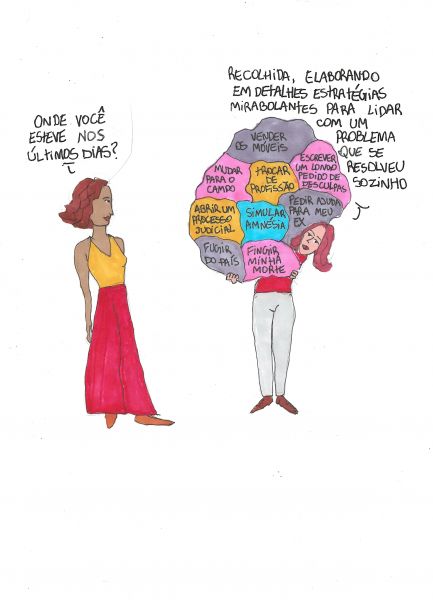 ONDE VOCÊ
ESTEVE NOS
ÚLTIMOS DIAS?
RECOLHIDA, ELABORANDO
EM DETALHES ESTRATÉGIAS
MIRABOLANTES PARA LIDAR
COM UM
PROBLEMA
QUE SE
RESOLVEU
SOZINHO
VENDER
OS MÓVEIS
MUDAR
PARA O
CAMPO
TROCAR
DE
PROFISSÃO
ESCREVER
UM LONGO
PEDIDO DE
DESCULPAS
ABRIR UM
PROCESSO
JUDICIAL
SIMULAR
AMNÉSIA
PEDIR AJUDA
PARA MEU
EX
FUGIR
DO PAÍS
FINGIR
MINHA
MORTE